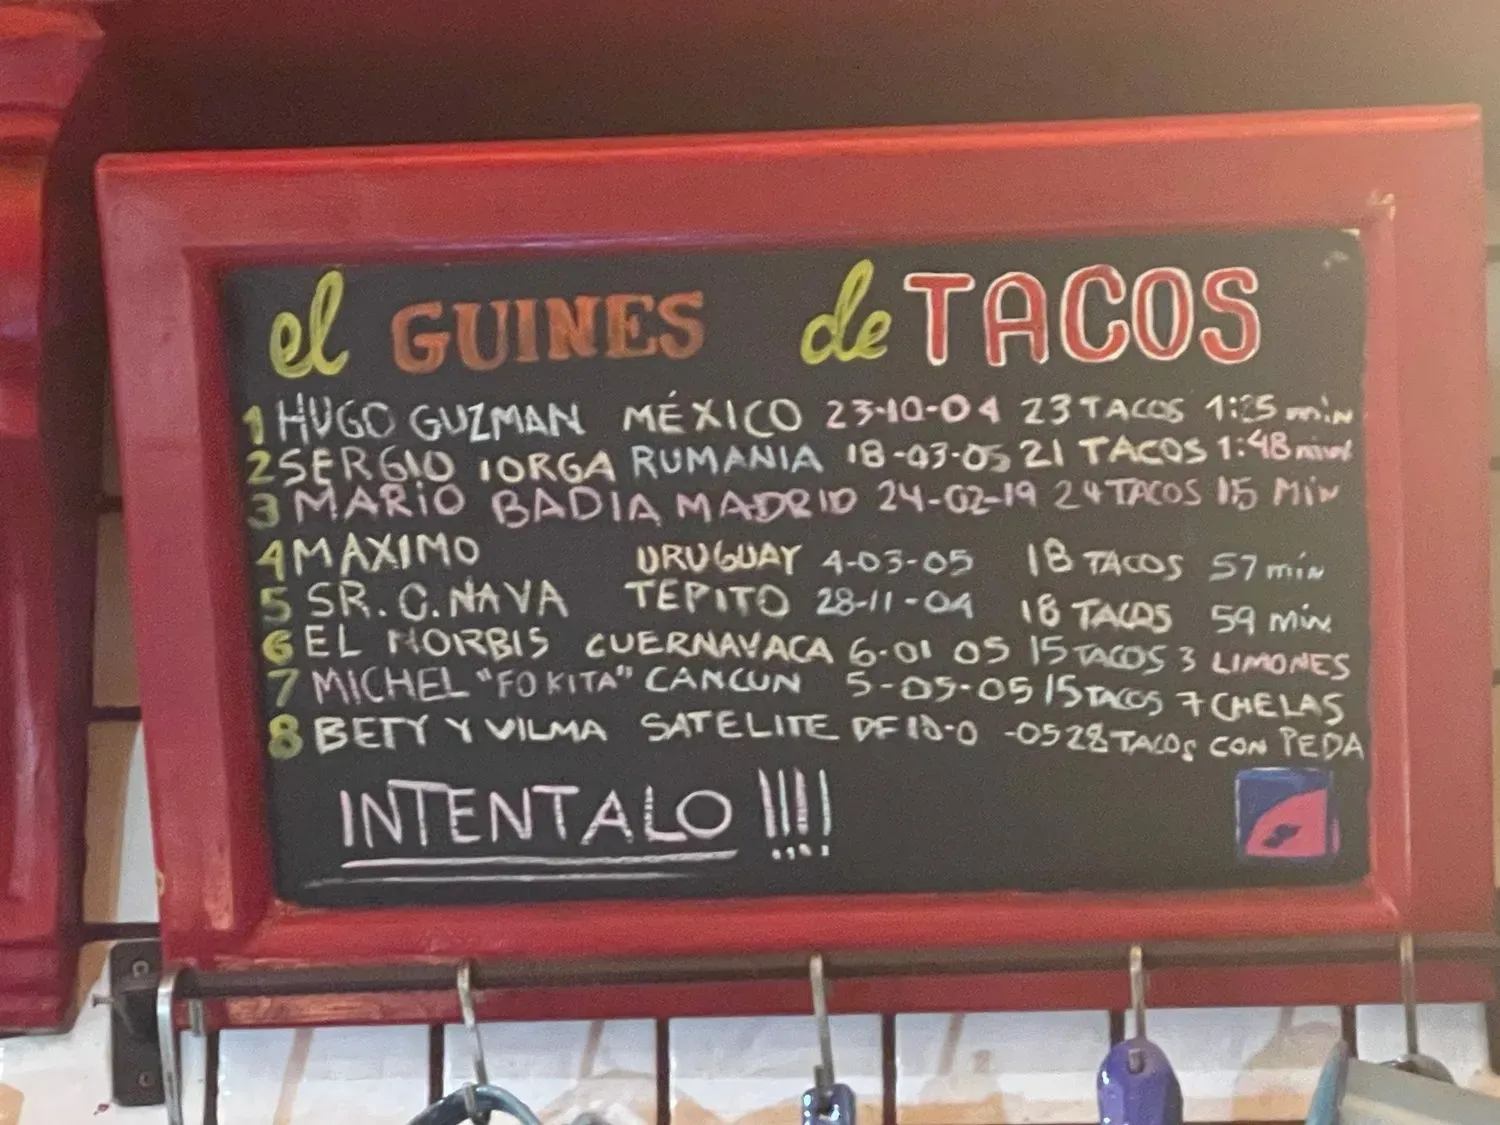 el GUINES de TACOS
1 HUGO GUZMAN MÉXICO 23-10-04 23 TACOS 1:25 min
2 SERGIO IORGA RUMANIA 18-03-05 21 TACOS 1:48 min
3 MARIO BADIA MADRID 24-02-19 24 TACOS 15 Min
4 MAXIMO URUGUAY 4-03-05 18 TACOS 57 min
5 SR. C. NAVA TEPITO 28-11-04 18 TACOS 59 min
6 EL NORBIS CUERNAVACA 6-01 05 15 TACOS 3 LIMONES
7 MICHEL "FOKITA" CANCUN 5-05-05 15 TACOS 7 CHELAS
8 BETY Y VILMA SATELITE DF -05 28 TACOS CON PEDA
INTENTALO !!!!